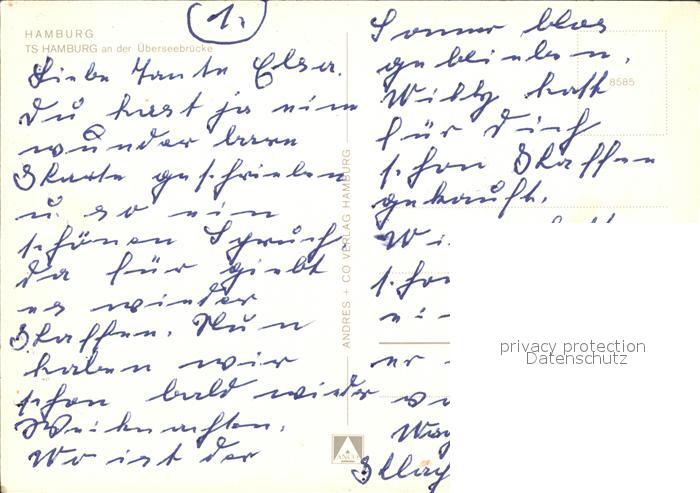 1.
HAMBURG
TS HAMBURG an der Überseebrücke
Liebe Tante Elsa.
Du hast ja eine
wunder bare
Karte geschrieben
u. so ein
schönen Spruch
da für giebt
es wieder
Kaffee. Nun
haben wir
schon bald wieder
Weihnachten.
Wo ist der
Sommer blos
geblieben.
Willy hatt
für dich
schon Kaffee
gekauft.
er
8585
ANDRES + CO VERLAG HAMBURG
ANCO
privacy protection
Datenschutz